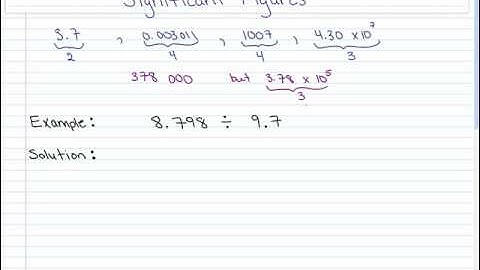 Significant Figures
3.7 , 0.003011 , 1007 , 4.30 × 10⁷
2 4 4 3
378 000 but 3.78 × 10⁵
3
Example: 8.798 ÷ 9.7
Solution: